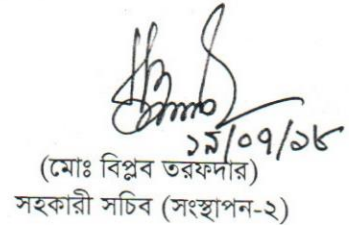 ১৯/০৭/১৮
(মোঃ বিপ্লব তরফদার)
সহকারী সচিব (সংস্থাপন-২)